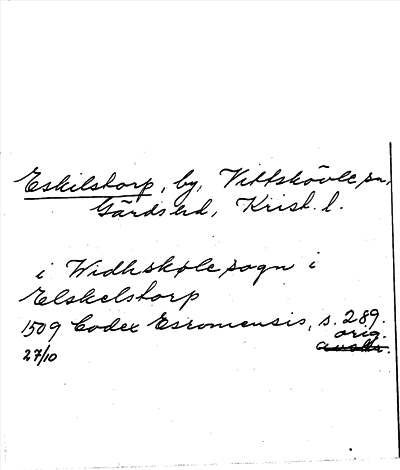 Eskilstorp, by, Vittskövle sn,
Gärds hd, Krist. l.
i Widhskøle sogn i
Elskelstorp
1509 Codex Esromensis, s. 289.
27/10 orig.
avskr.